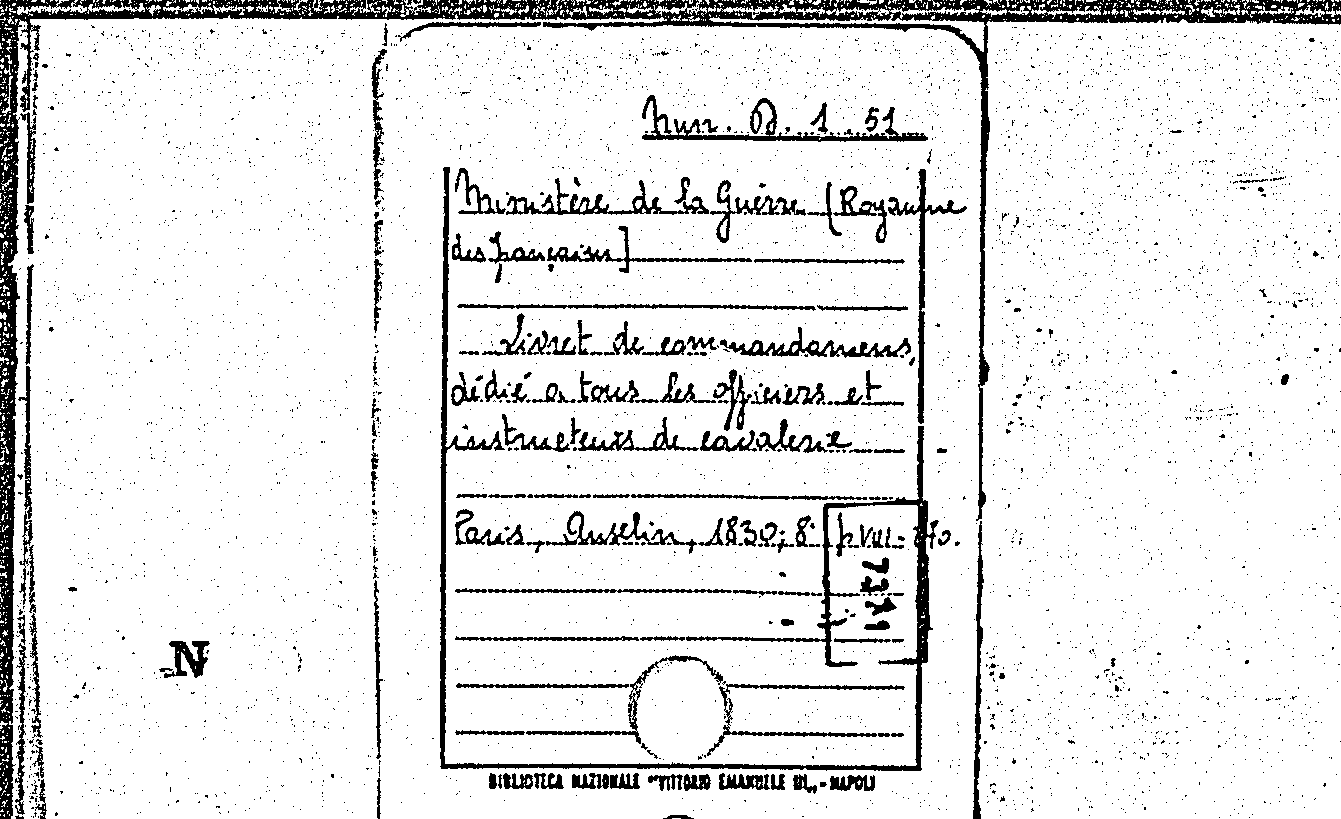 Nun. B. 1. 51
Ministère de la Guerre [Royaume
des français]
Livret de commandamens,
dédié a tous les officiers et
instructeurs de cavalerie
Paris, Anselin, 1830; 8° p. VIII-
N
BIBLIOTECA NAZIONALE "VITTORIO EMANUELE III" - NAPOLI